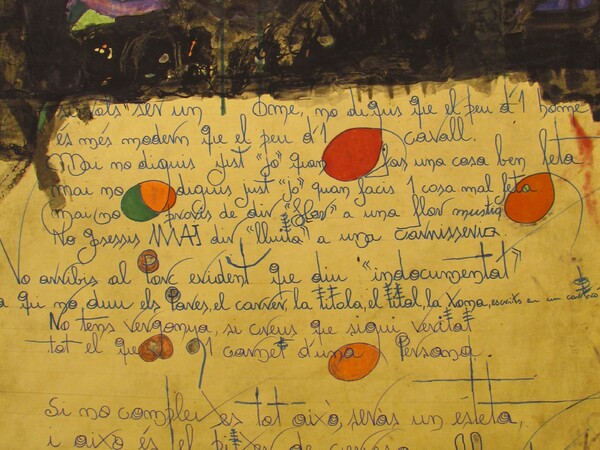 si vols ser un Ome, no diguis que el peu d'1 home
és més modern que el peu d'1 cavall.
Mai no diguis just "jo" quan fas una cosa ben feta
mai no diguis just "jo" quan facis 1 cosa mal feta
mai no provés de dir "flor" a una flor mustiga
No gosessis MMAI dir "lluita" a una carnisseria
No arribis al tard evident que diu "indocumentat"
a qui no duu els pares, el carrer, la titola, el titol, la xona, escrits en un cartró
No tens vergonya, si creus que sigui veritat
tot el que 1 carnet d'una Persona.
Si no compleixes tot això, seràs un esteta,
i això és el de